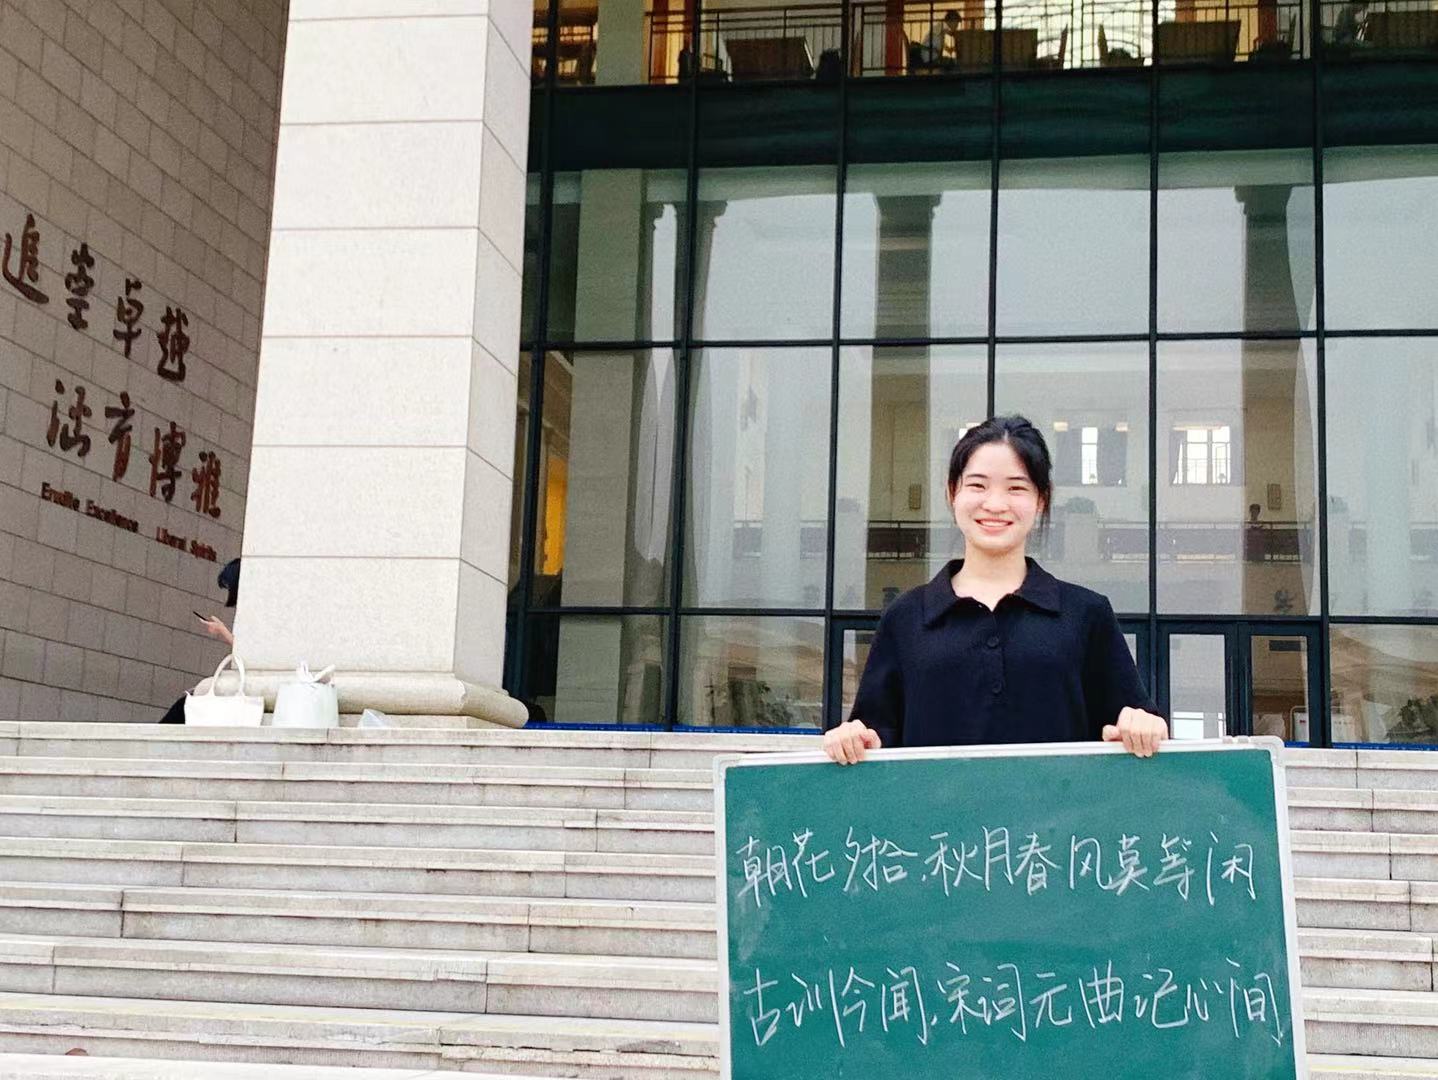 追崇卓越
涵育博雅
Erudite Excellence Liberal Spirits
朝花夕拾,秋月春风莫等闲
古训今闻,宋词元曲记心间